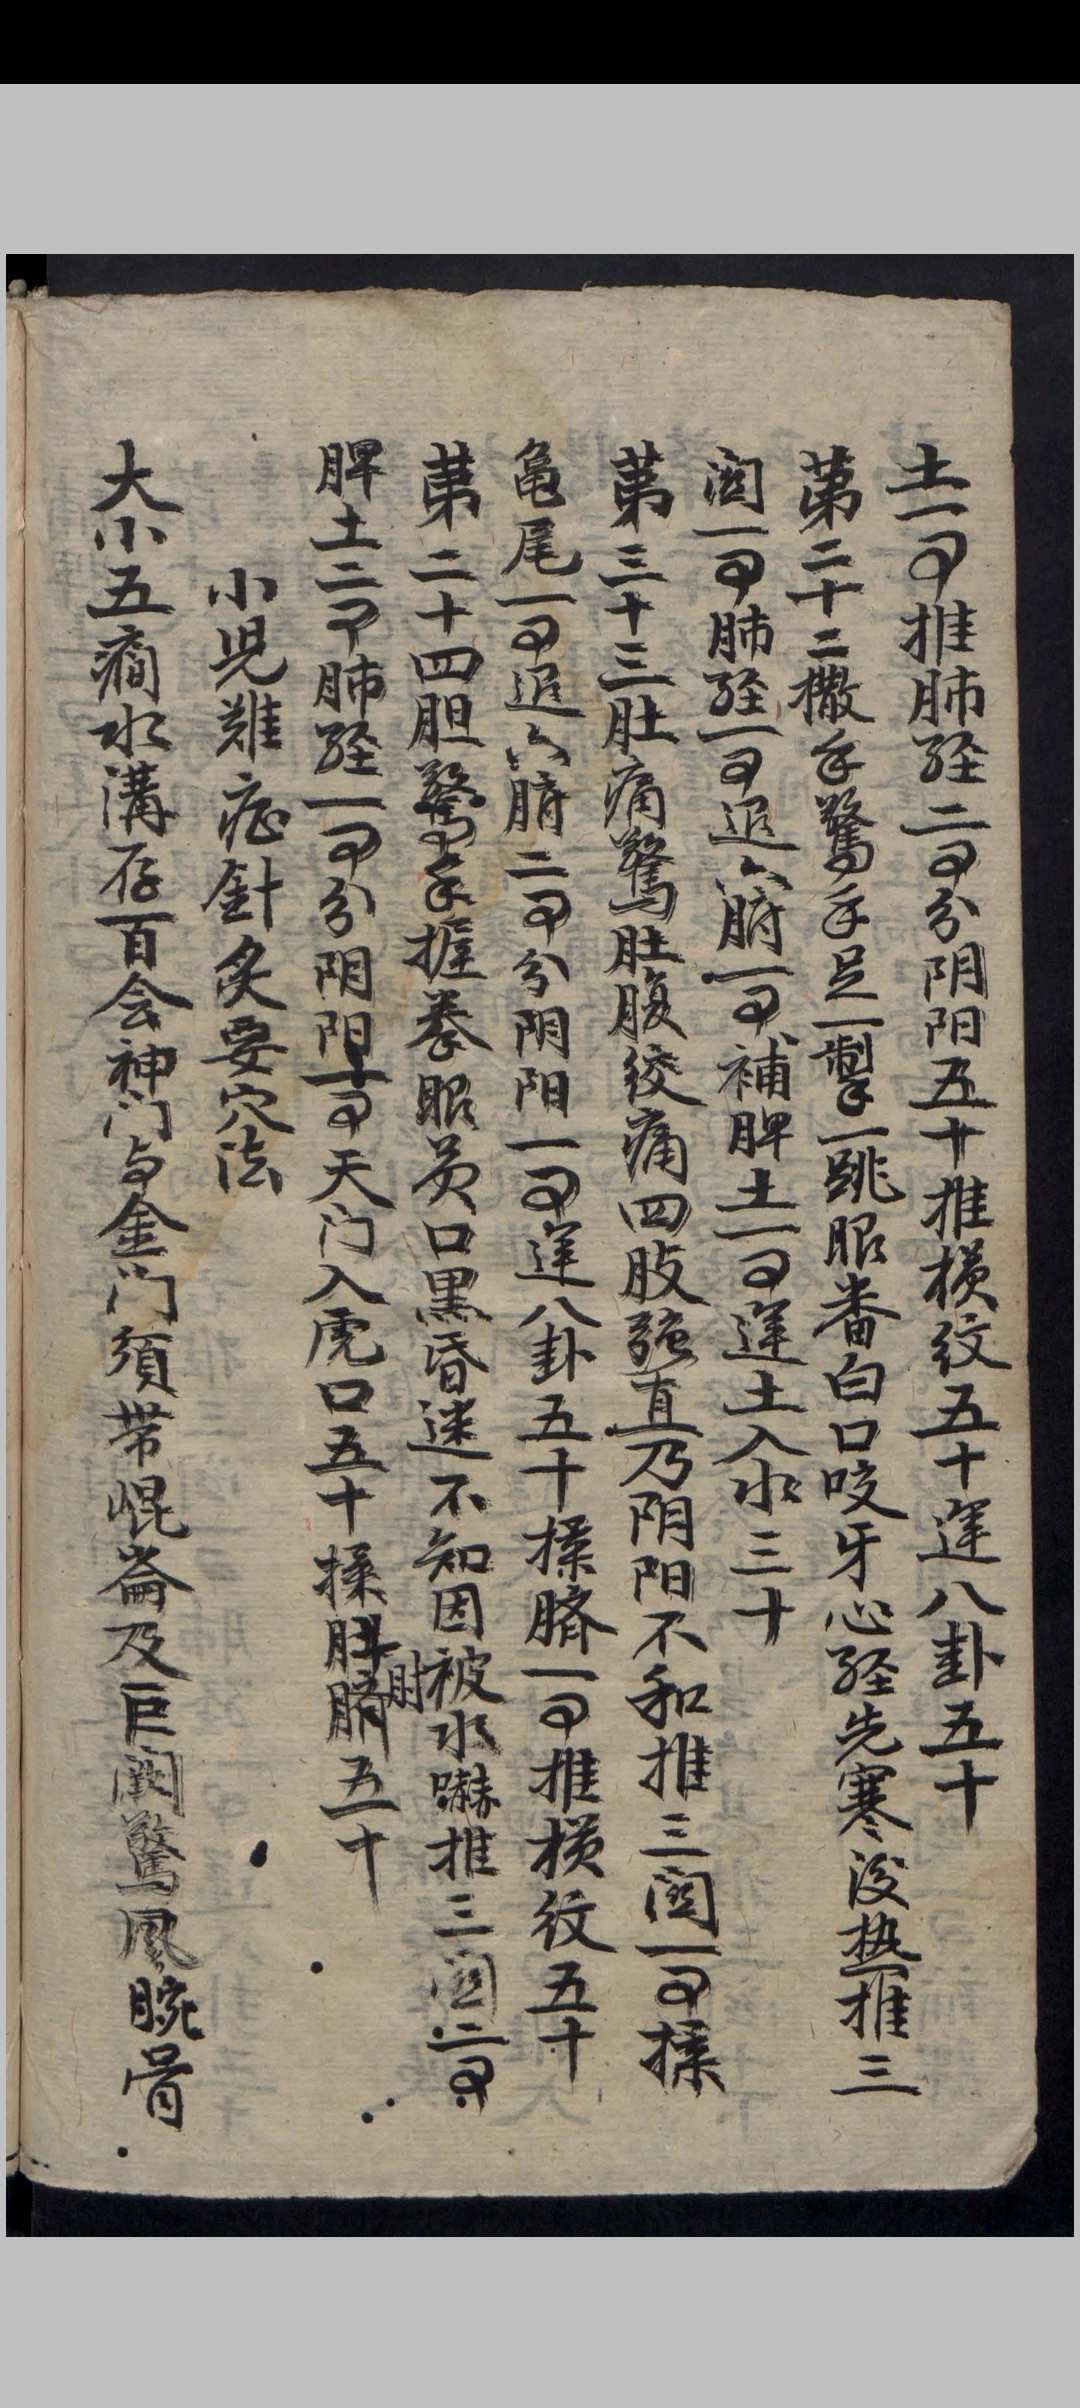 土一百推肺经二百分阴阳五十推横纹五十运八卦五十
第二十二撒手驚手足一掣一跳眼番白口咬牙心经先寒後热推三
関一百肺经一百退六腑一百補脾土一百運土入水三十
第三十三肚痛驚肚腹绞痛四肢强直乃阴阳不和推三関一百揉
龟尾一百退六腑二百分阴阳一百運八卦五十揉臍一百推横纹五十
第二十四胆驚手握拳眼黄口黑昏迷不知因被水嚇推三関二百
脾土二百肺经一百分阴阳一百天门入虎口五十揉臍五十
肘
小児雜症針灸要穴法
大小五癇水溝存百会神门与金门須带崐崙及巨阙驚風腕骨